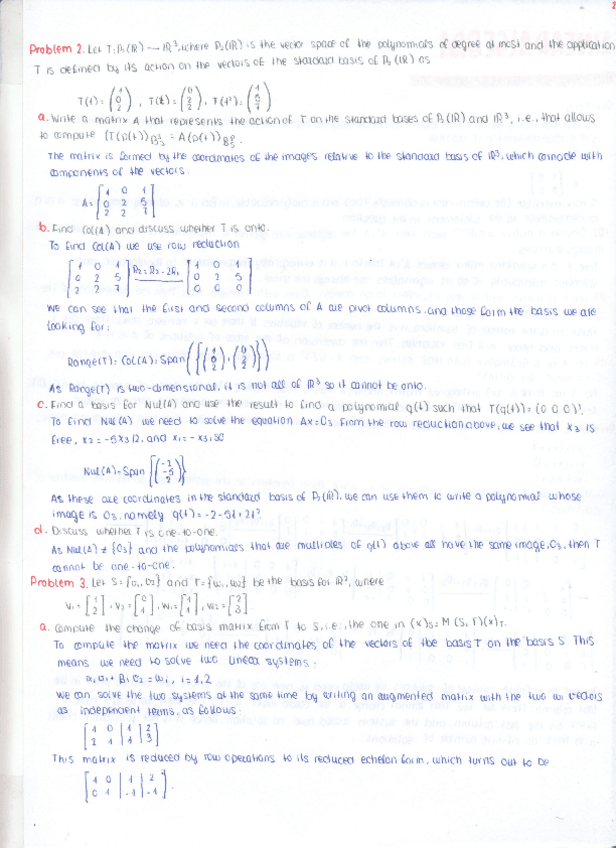 2
Problem 2. Let T: P₂(ℝ) → ℝ³, where P₂(ℝ) is the vector space of the polynomials of degree at most and the application
T is defined by its action on the vectors of the standard basis of P₂(ℝ) as
T(1) = (1 0 2), T(t) = (0 2 2), T(t²) = (1 5 7)
a. Write a matrix A that represents the action of T on the standard bases of P₂(ℝ) and ℝ³, i.e., that allows
to compute (T(p(t)) = A(p(t))
The matrix is formed by the coordinates of the images relative to the standard basis of ℝ³, which coincide with
components of the vectors:
A = [1 0 1
0 2 5
2 2 7]
b. Find Col(A) and discuss whether T is onto.
To find Col(A) we use row reduction
[1 0 1 R₃ - 2R₁ [1 0 1
0 2 5 0 2 5
2 2 7] 0 0 0]
We can see that the first and second columns of A are pivot columns, and those form the basis we are
looking for:
Range(T) = Col(A) = Span
As Range(T) is two-dimensional, it is not all of ℝ³ so it cannot be onto.
c. Find a basis for Nul(A) and use the result to find a polynomial q(t) such that T(q(t)) = (0 0 0)ᵗ.
To find Nul(A) we need to solve the equation Ax=0₃. From the row reduction above, we see that x₃ is
free, x₂ = -5x₃/2, and x₁ = -x₃, so
Nul(A) = Span {(-2 -5 2)}
As these are coordinates in the standard basis of P₂(ℝ), we can use them to write a polynomial whose
image is 0₃, namely q(t) = -2-5t+2t².
d. Discuss whether T is one-to-one.
As Nul(A) ≠ {0₃} and the polynomials that are multiples of q(t) above all have the same image, 0₃, then T
cannot be one-to-one.
Problem 3. Let S = {v₁, v₂} and T = {w₁, w₂} be the basis for ℝ², where
v₁ = [1 2], v₂ = [0 1], w₁ = [1 1], w₂ = [2 3].
a. Compute the change of basis matrix from T to S, i.e., the one in (x)s = M(S,T)(x)т.
To compute the matrix we need the coordinates of the vectors of the basis T on the basis S. This
means we need to solve two linear systems:
αᵢv₁ + βᵢv₂ = wᵢ, i=1,2
We can solve the two systems at the same time by writing an augmented matrix with the two w vectors
as independent terms, as follows:
[1 0 | 1 | 2
2 1 | 1 | 3]
This matrix is reduced by row operations to its reduced echelon form, which turns out to be
[1 0 | 1 | 2
0 1 | -1 | -1].